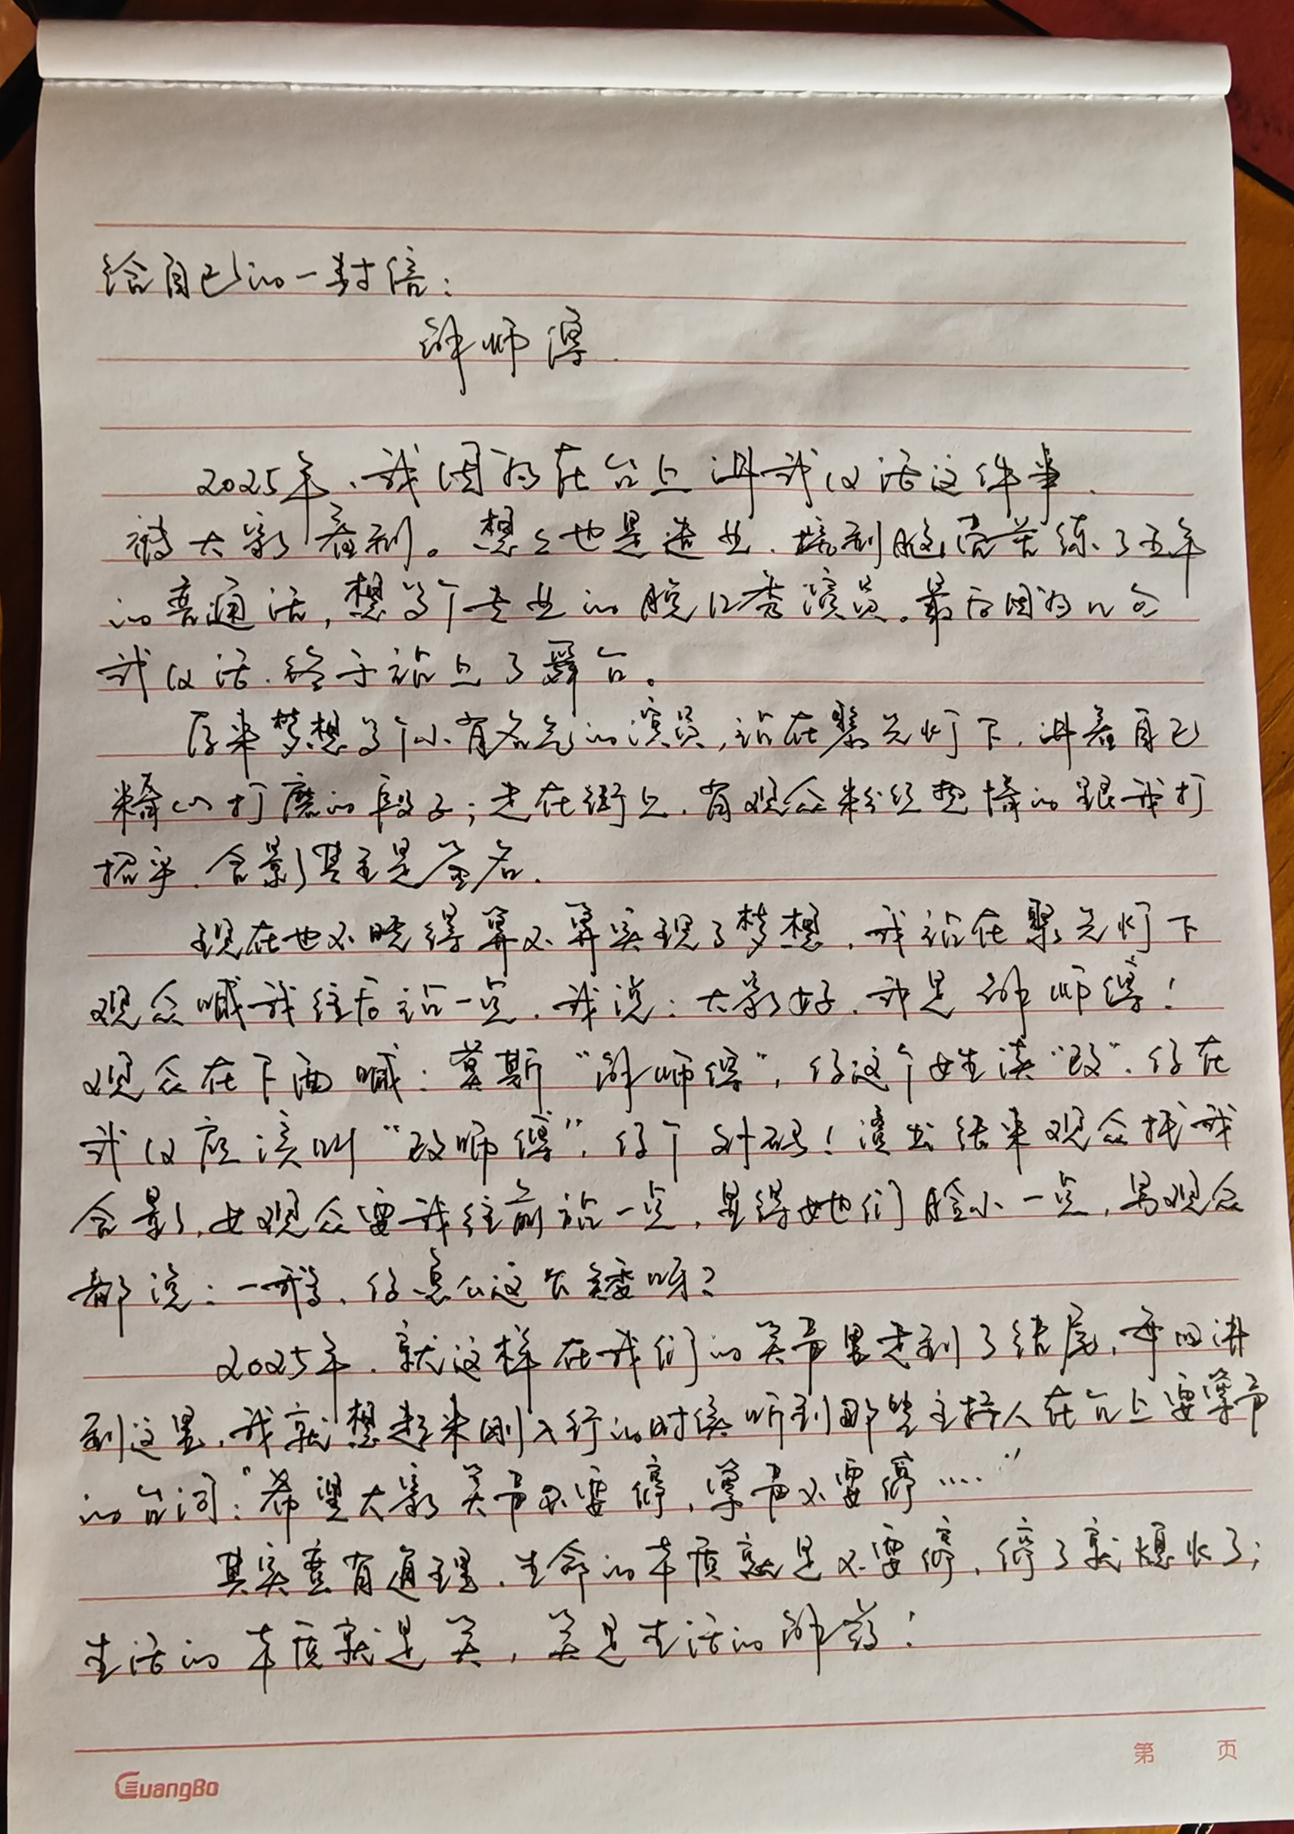 给自己的一封信:
解师傅
2025年、我因为在台上讲武汉话这件事、
被大家看到。想想也是造业、搞到脑壳苦练了五年
的普通话,想当个专业的脱口秀演员。最后因为几句
武汉话、终于站上了舞台。
原来梦想当个小有名气的演员,站在聚光灯下、讲着自己
精心打磨的段子;走在街上、有观众粉丝热情的跟我打
招呼、合影甚至是签名、
现在也不晓得算不算实现了梦想、我站在聚光灯下
观众喊我往后站一点、我说:大家好、我是解师傅!
观众在下面喊:莫斯“解师傅”,你这个姓读“改”、你在
武汉应该叫“改师傅”、你个外码!演出结束观众找我
合影、女观众要我往前站一点,显得她们脸小一点,男观众
都说:一哟、你怎么这么矮呀?
2025年、就这样在我们的笑声里走到了结尾,每回讲
到这里、我就想起来刚入行的时候听到那些主持人在台上要掌声
的台词:“希望大家笑声不要停,掌声不要停……”
其实蛮有道理、生命的本质就是不要停、停了就熄火了;
生活的本质就是笑,笑是生活的解药!
第 页
GuangBo